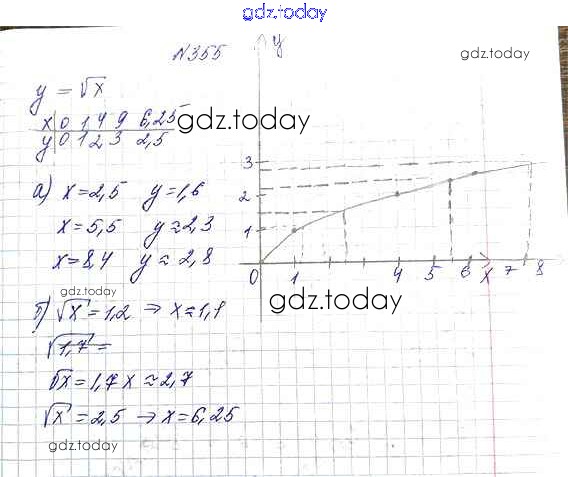 gdz.today
N355
gdz.today
y = √x
x 0 1 4 9 6,25
y 0 1 2 3 2,5
gdz.today
а) x=2,5 y=1,6
x=5,5 y≈2,3
x=8,4 y≈2,8
gdz.today
б) √x=1,2 ⇒ x≈1,1
√1,7 =
√x=1,7 x≈2,7
√x=2,5 → x=6,25
gdz.today
y
3
2
1
0 1 4 5 6 x 7 8
gdz.today